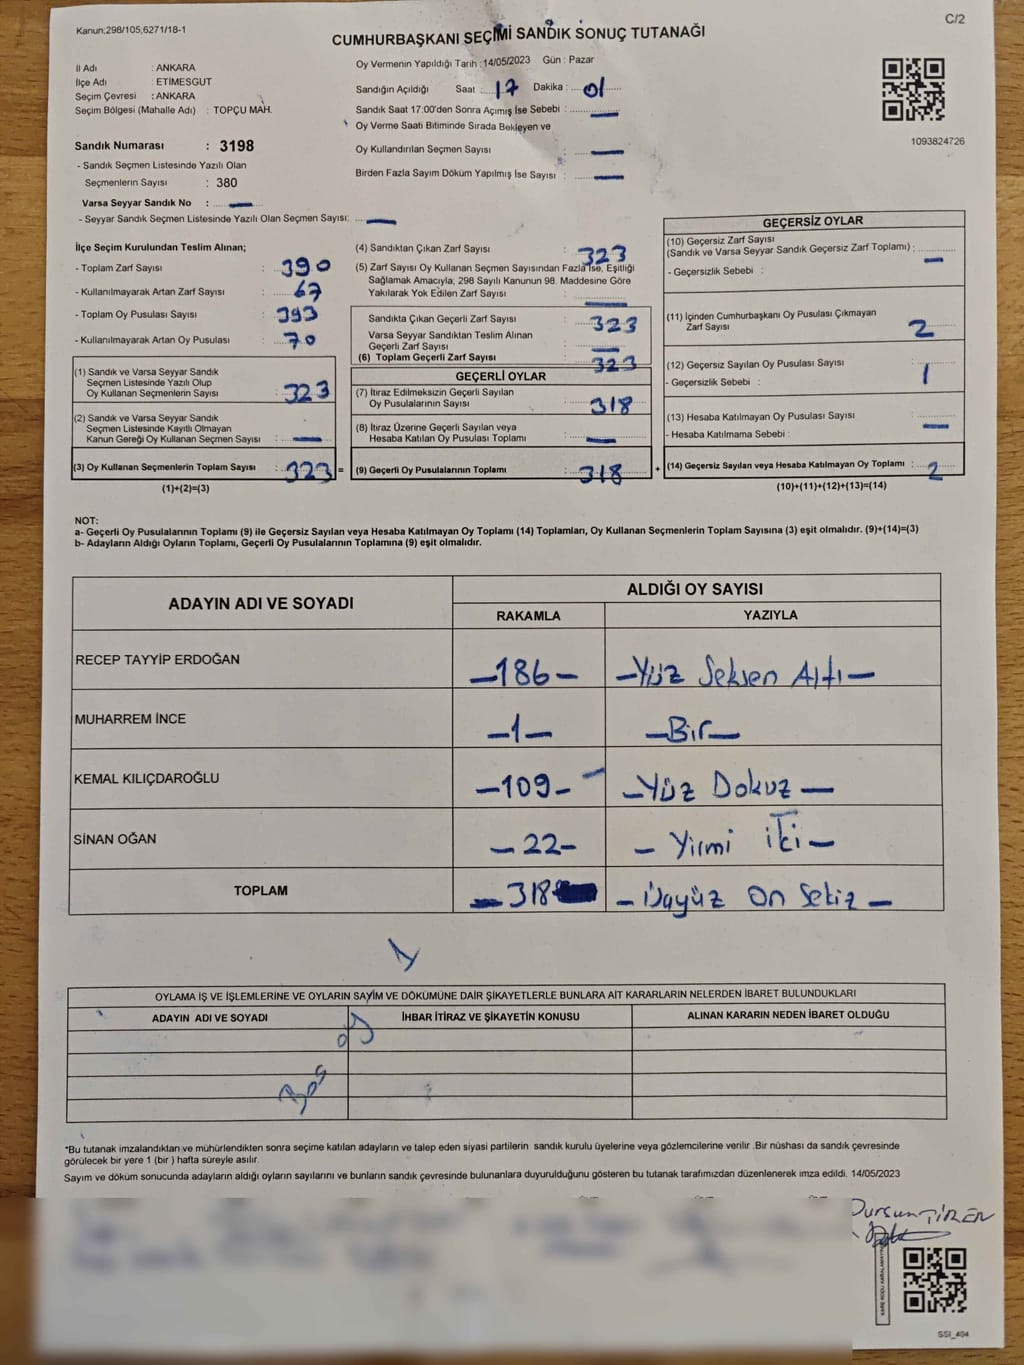 Kanun;298/105,6271/18-1
C/2
CUMHURBAŞKANI SEÇİMİ SANDIK SONUÇ TUTANAĞI
İl Adı : ANKARA
İlçe Adı : ETİMESGUT
Seçim Çevresi : ANKARA
Seçim Bölgesi (Mahalle Adı) : TOPÇU MAH.
Sandık Numarası : 3198
- Sandık Seçmen Listesinde Yazılı Olan
Seçmenlerin Sayısı : 380
Varsa Seyyar Sandık No : —
- Seyyar Sandık Seçmen Listesinde Yazılı Olan Seçmen Sayısı: —
Oy Vermenin Yapıldığı Tarih :14/05/2023 Gün : Pazar
Sandığın Açıldığı Saat : 17 Dakika : 01
Sandık Saat 17:00'den Sonra Açımış İse Sebebi : —
Oy Verme Saati Bitiminde Sırada Bekleyen ve
Oy Kullandırılan Seçmen Sayısı —
Birden Fazla Sayım Döküm Yapılmış İse Sayısı : —
1093824726
İlçe Seçim Kurulundan Teslim Alınan;
- Toplam Zarf Sayısı : 390
- Kullanılmayarak Artan Zarf Sayısı : 67
- Toplam Oy Pusulası Sayısı : 393
- Kullanılmayarak Artan Oy Pusulası : 70
(1) Sandık ve Varsa Seyyar Sandık
Seçmen Listesinde Yazılı Olup
Oy Kullanan Seçmenlerin Sayısı : 323
(2) Sandık ve Varsa Seyyar Sandık
Seçmen Listesinde Kayıtlı Olmayan
Kanun Gereği Oy Kullanan Seçmen Sayısı : —
(3) Oy Kullanan Seçmenlerin Toplam Sayısı : 323 =
(1)+(2)=(3)
(4) Sandıktan Çıkan Zarf Sayısı : 323
(5) Zarf Sayısı Oy Kullanan Seçmen Sayısından Fazla İse, Eşitliği
Sağlamak Amacıyla, 298 Sayılı Kanunun 98. Maddesine Göre
Yakılarak Yok Edilen Zarf Sayısı : —
Sandıkta Çıkan Geçerli Zarf Sayısı : 323
Varsa Seyyar Sandıktan Teslim Alınan
Geçerli Zarf Sayısı : —
(6) Toplam Geçerli Zarf Sayısı : 323
GEÇERLİ OYLAR
(7) İtiraz Edilmeksizin Geçerli Sayılan
Oy Pusulalarının Sayısı : 318
(8) İtiraz Üzerine Geçerli Sayılan veya
Hesaba Katılan Oy Pusulası Toplamı : —
(9) Geçerli Oy Pusulalarının Toplamı : 318 +
GEÇERSİZ OYLAR
(10) Geçersiz Zarf Sayısı
(Sandık ve Varsa Seyyar Sandık Geçersiz Zarf Toplamı) : —
- Geçersizlik Sebebi :
(11) İçinden Cumhurbaşkanı Oy Pusulası Çıkmayan
Zarf Sayısı 2
(12) Geçersiz Sayılan Oy Pusulası Sayısı 1
- Geçersizlik Sebebi :
(13) Hesaba Katılmayan Oy Pusulası Sayısı —
- Hesaba Katılmama Sebebi :
(14) Geçersiz Sayılan veya Hesaba Katılmayan Oy Toplamı : 2
(10)+(11)+(12)+(13)=(14)
NOT:
a- Geçerli Oy Pusulalarının Toplamı (9) ile Geçersiz Sayılan veya Hesaba Katılmayan Oy Toplamı (14) Toplamları, Oy Kullanan Seçmenlerin Toplam Sayısına (3) eşit olmalıdır. (9)+(14)=(3)
b- Adayların Aldığı Oyların Toplamı, Geçerli Oy Pusulalarının Toplamına (9) eşit olmalıdır.
ADAYIN ADI VE SOYADI ALDIĞI OY SAYISI
RAKAMLA YAZIYLA
RECEP TAYYİP ERDOĞAN —186— —Yüz Seksen Altı—
MUHARREM İNCE —1— —Bir—
KEMAL KILIÇDAROĞLU —109— —Yüz Dokuz—
SİNAN OĞAN —22— —Yirmi iki—
TOPLAM —318 —Üçyüz On Sekiz—
OYLAMA İŞ VE İŞLEMLERİNE VE OYLARIN SAYIM VE DÖKÜMÜNE DAİR ŞİKAYETLERLE BUNLARA AİT KARARLARIN NELERDEN İBARET BULUNDUKLARI
ADAYIN ADI VE SOYADI İHBAR İTİRAZ VE ŞİKAYETİN KONUSU ALINAN KARARIN NEDEN İBARET OLDUĞU
*Bu tutanak imzalandıktan ve mühürlendikten sonra seçime katılan adayların ve talep eden siyasi partilerin sandık kurulu üyelerine veya gözlemcilerine verilir .Bir nüshası da sandık çevresinde
görülecek bir yere 1 (bir ) hafta süreyle asılır.
Sayım ve döküm sonucunda adayların aldığı oyların sayılarını ve bunların sandık çevresinde bulunanlara duyurulduğunu gösteren bu tutanak tarafımızdan düzenlenerek imza edildi. 14/05/2023
Dursun
SSI_404